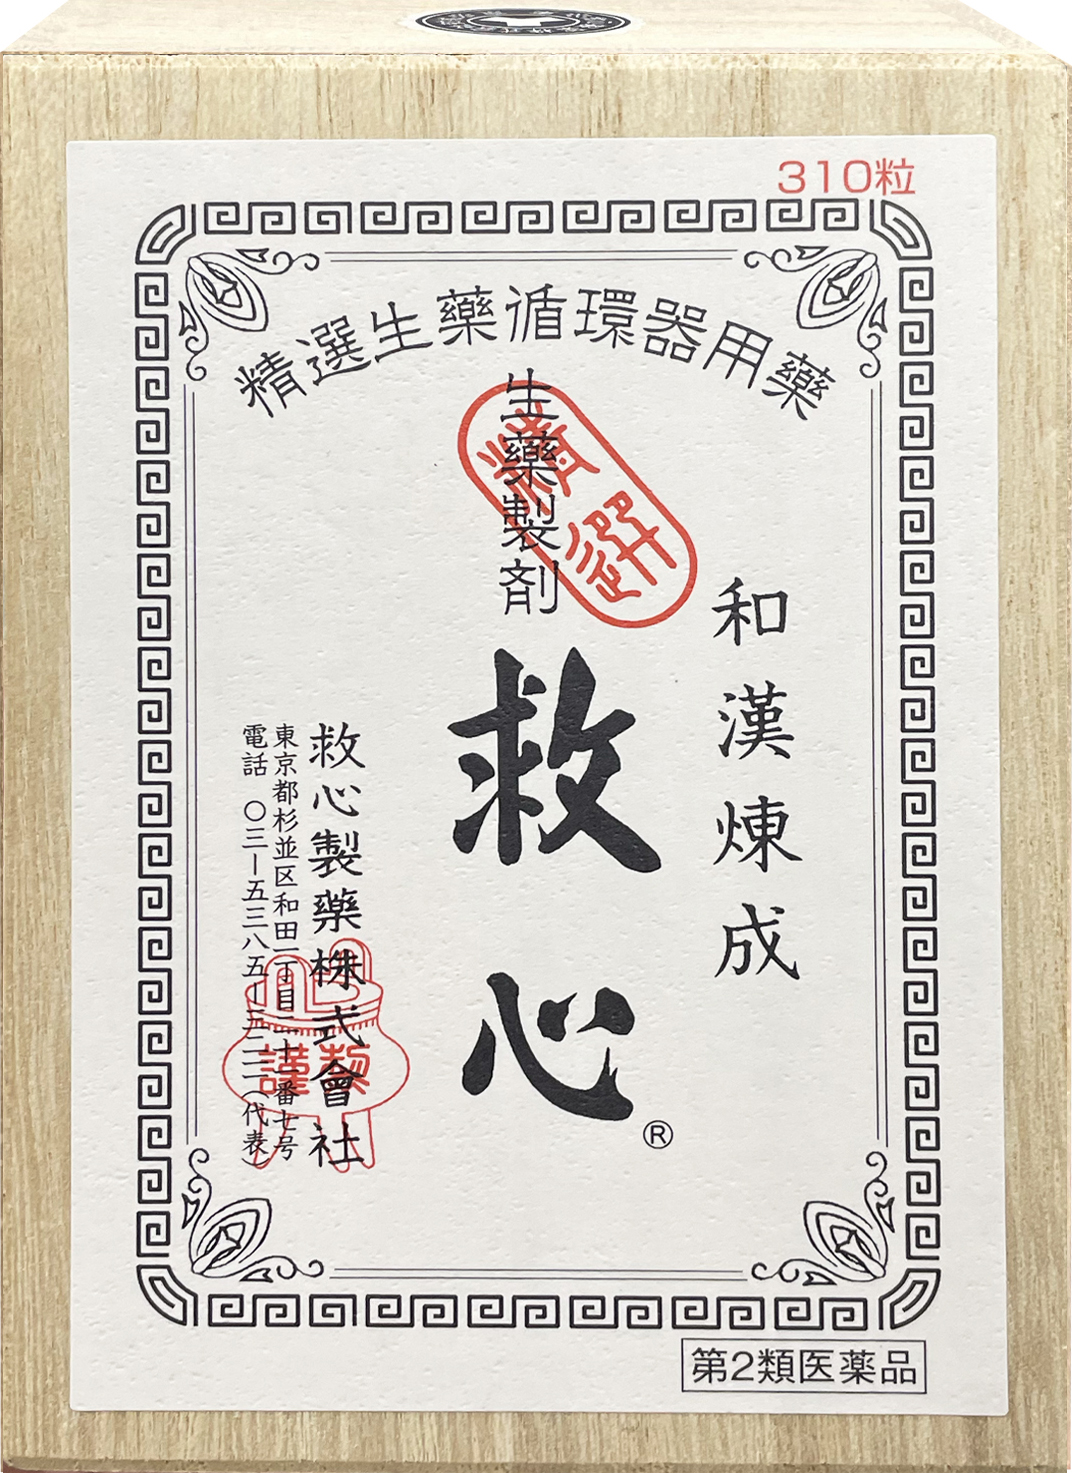 310粒
精選生藥循環器用藥
生藥製剤
和漢煉成
救心
®
救心製藥株式會社
東京都杉並区和田一丁目二十一番七号
電話 〇三ー五三八五ー三二一一(代表)
謹製
第2類医薬品